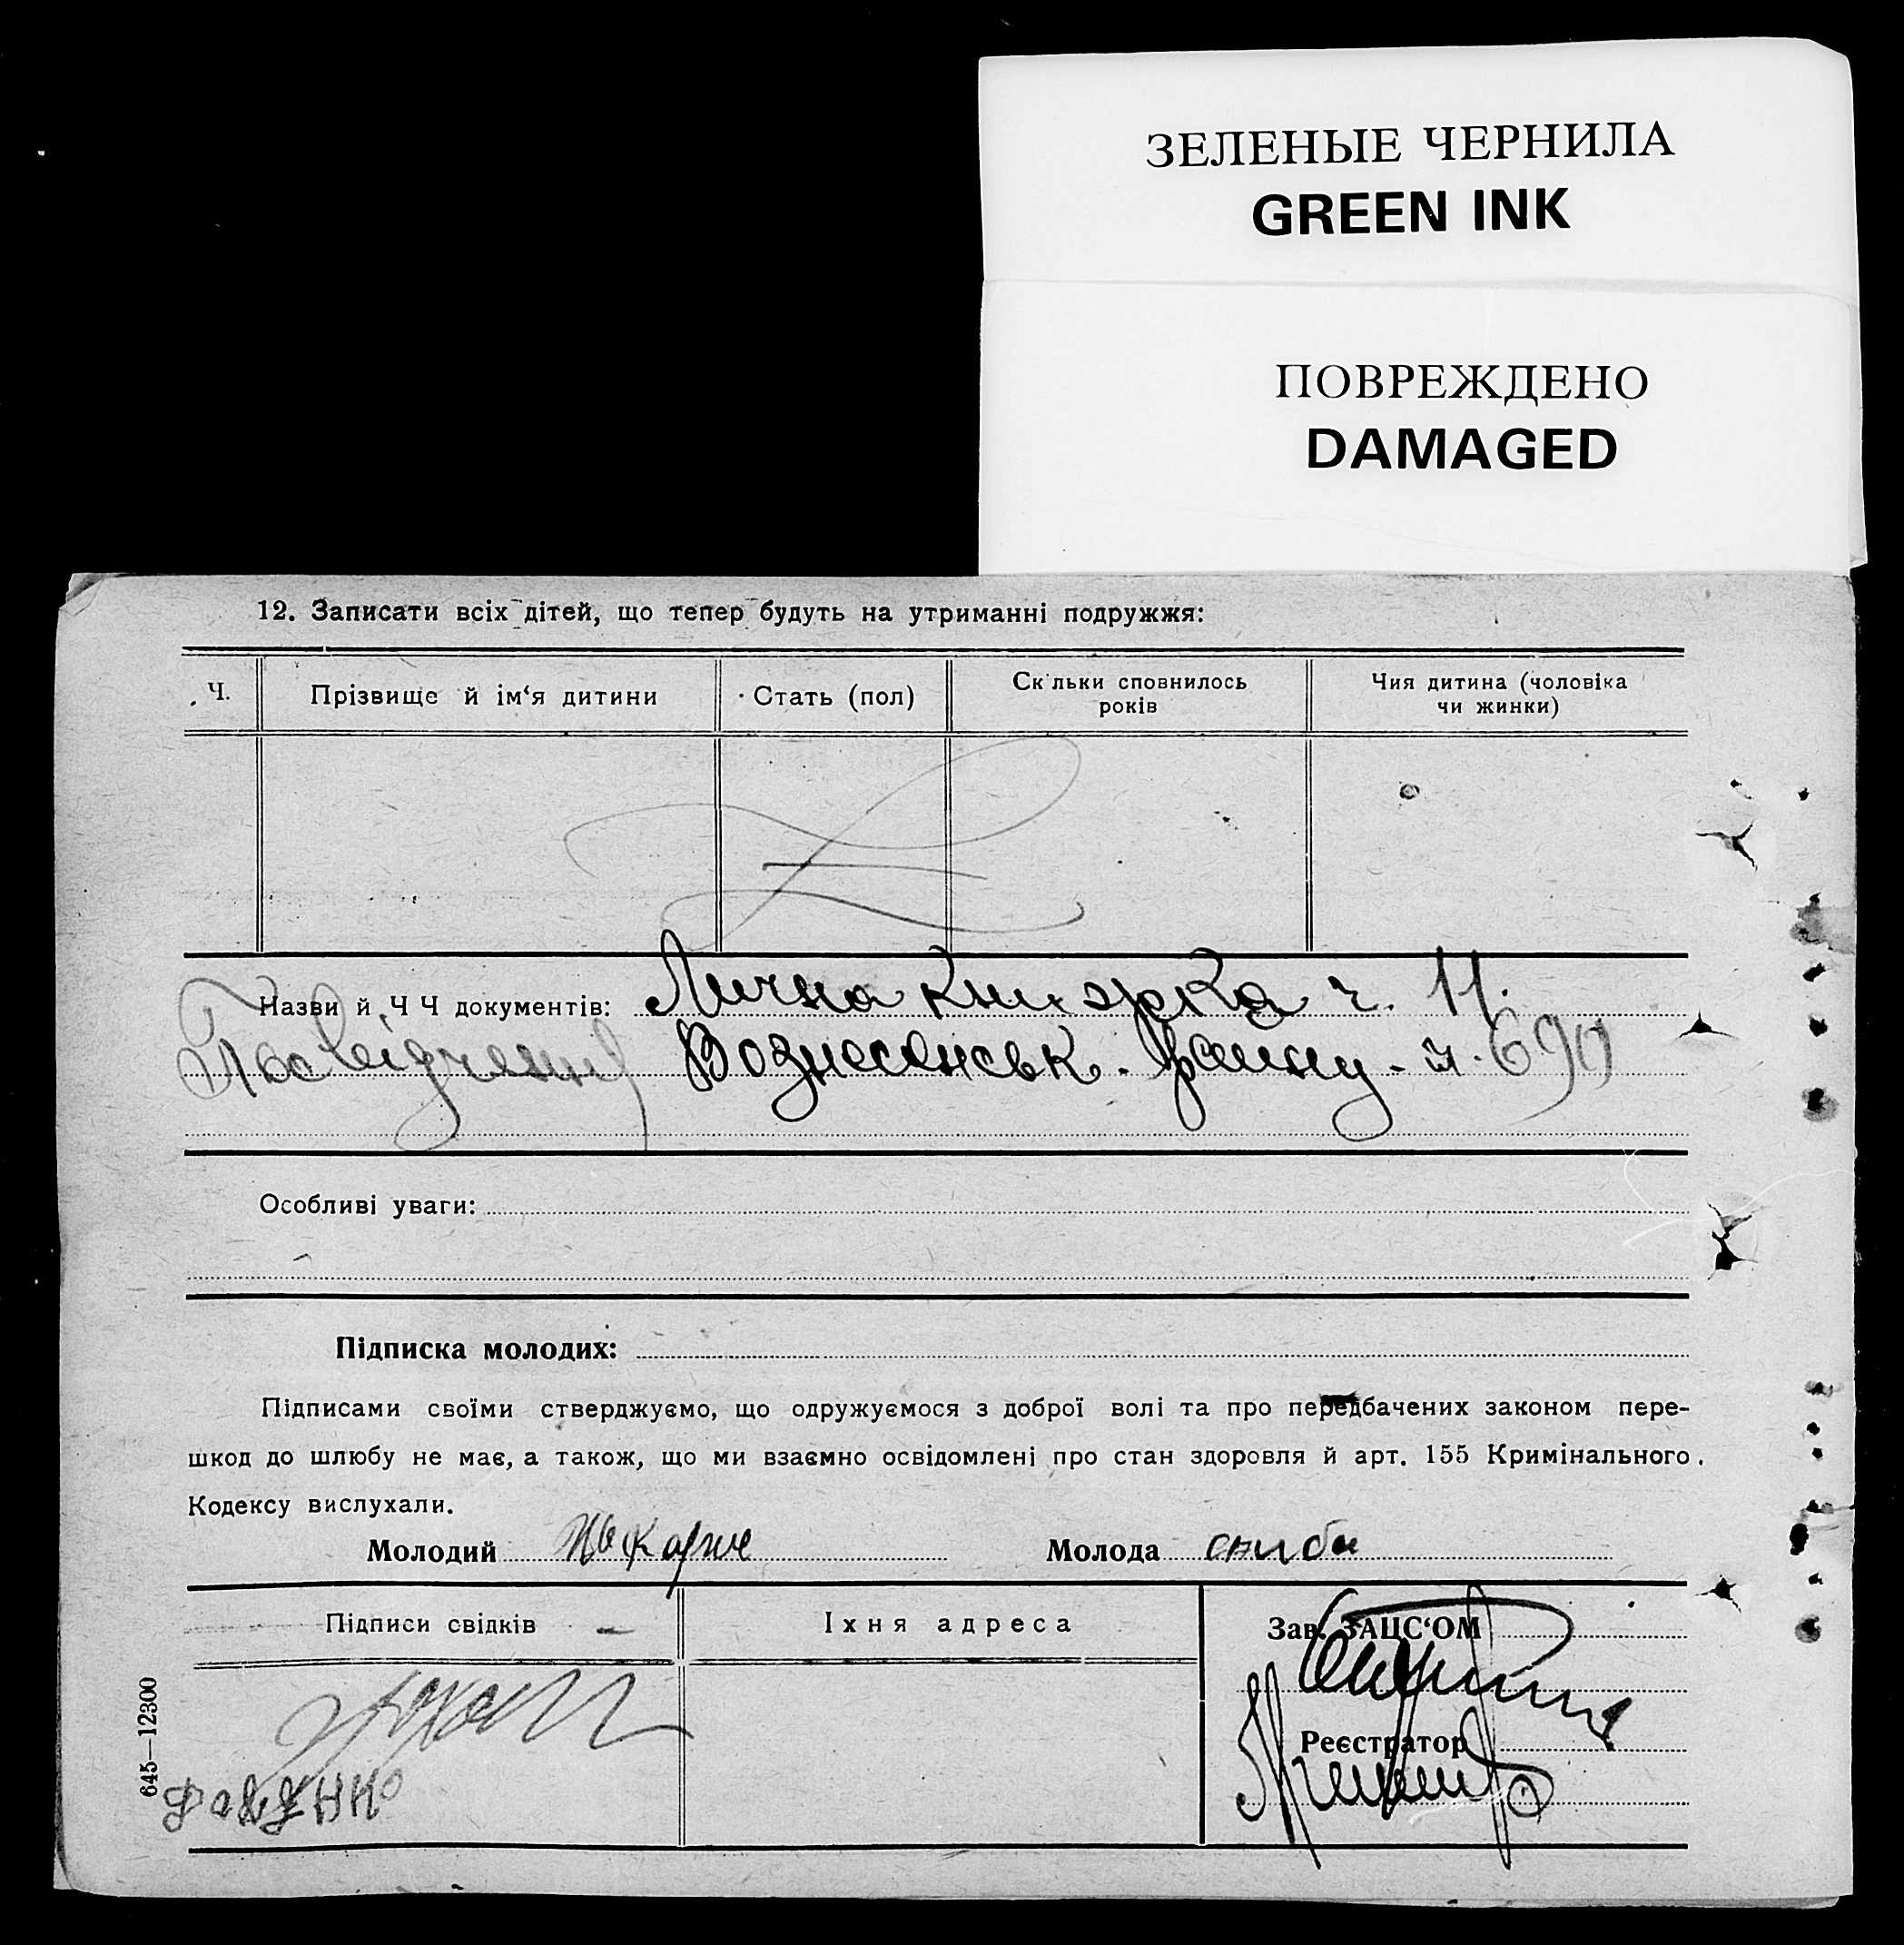 ЗЕЛЕНЫЕ ЧЕРНИЛА
GREEN INK
ПОВРЕЖДЕНО
DAMAGED
12. Записати всіх дітей, що тепер будуть на утриманні подружжя:
Ч. Прізвище й ім‘я дитини Стать (пол) Скільки сповнилось років Чия дитина (чоловіка чи жинки)
Назви й Ч Ч документів: Лична книжка ч. 11.
Посвідчення Вознесенськ. району 690
Особливі уваги:
Підписка молодих:
Підписами своїми стверджуємо, що одружуємося з доброї волі та про передбачених законом пере-
шкод до шлюбу не має, а також, що ми взаємно освідомлені про стан здоровля й арт. 155 Кримінального.
Кодексу вислухали.
Молодий Молода
Підписи свідків Іхня адреса Зав. ЗАЦС‘ОМ
Реєстратор
645—12300